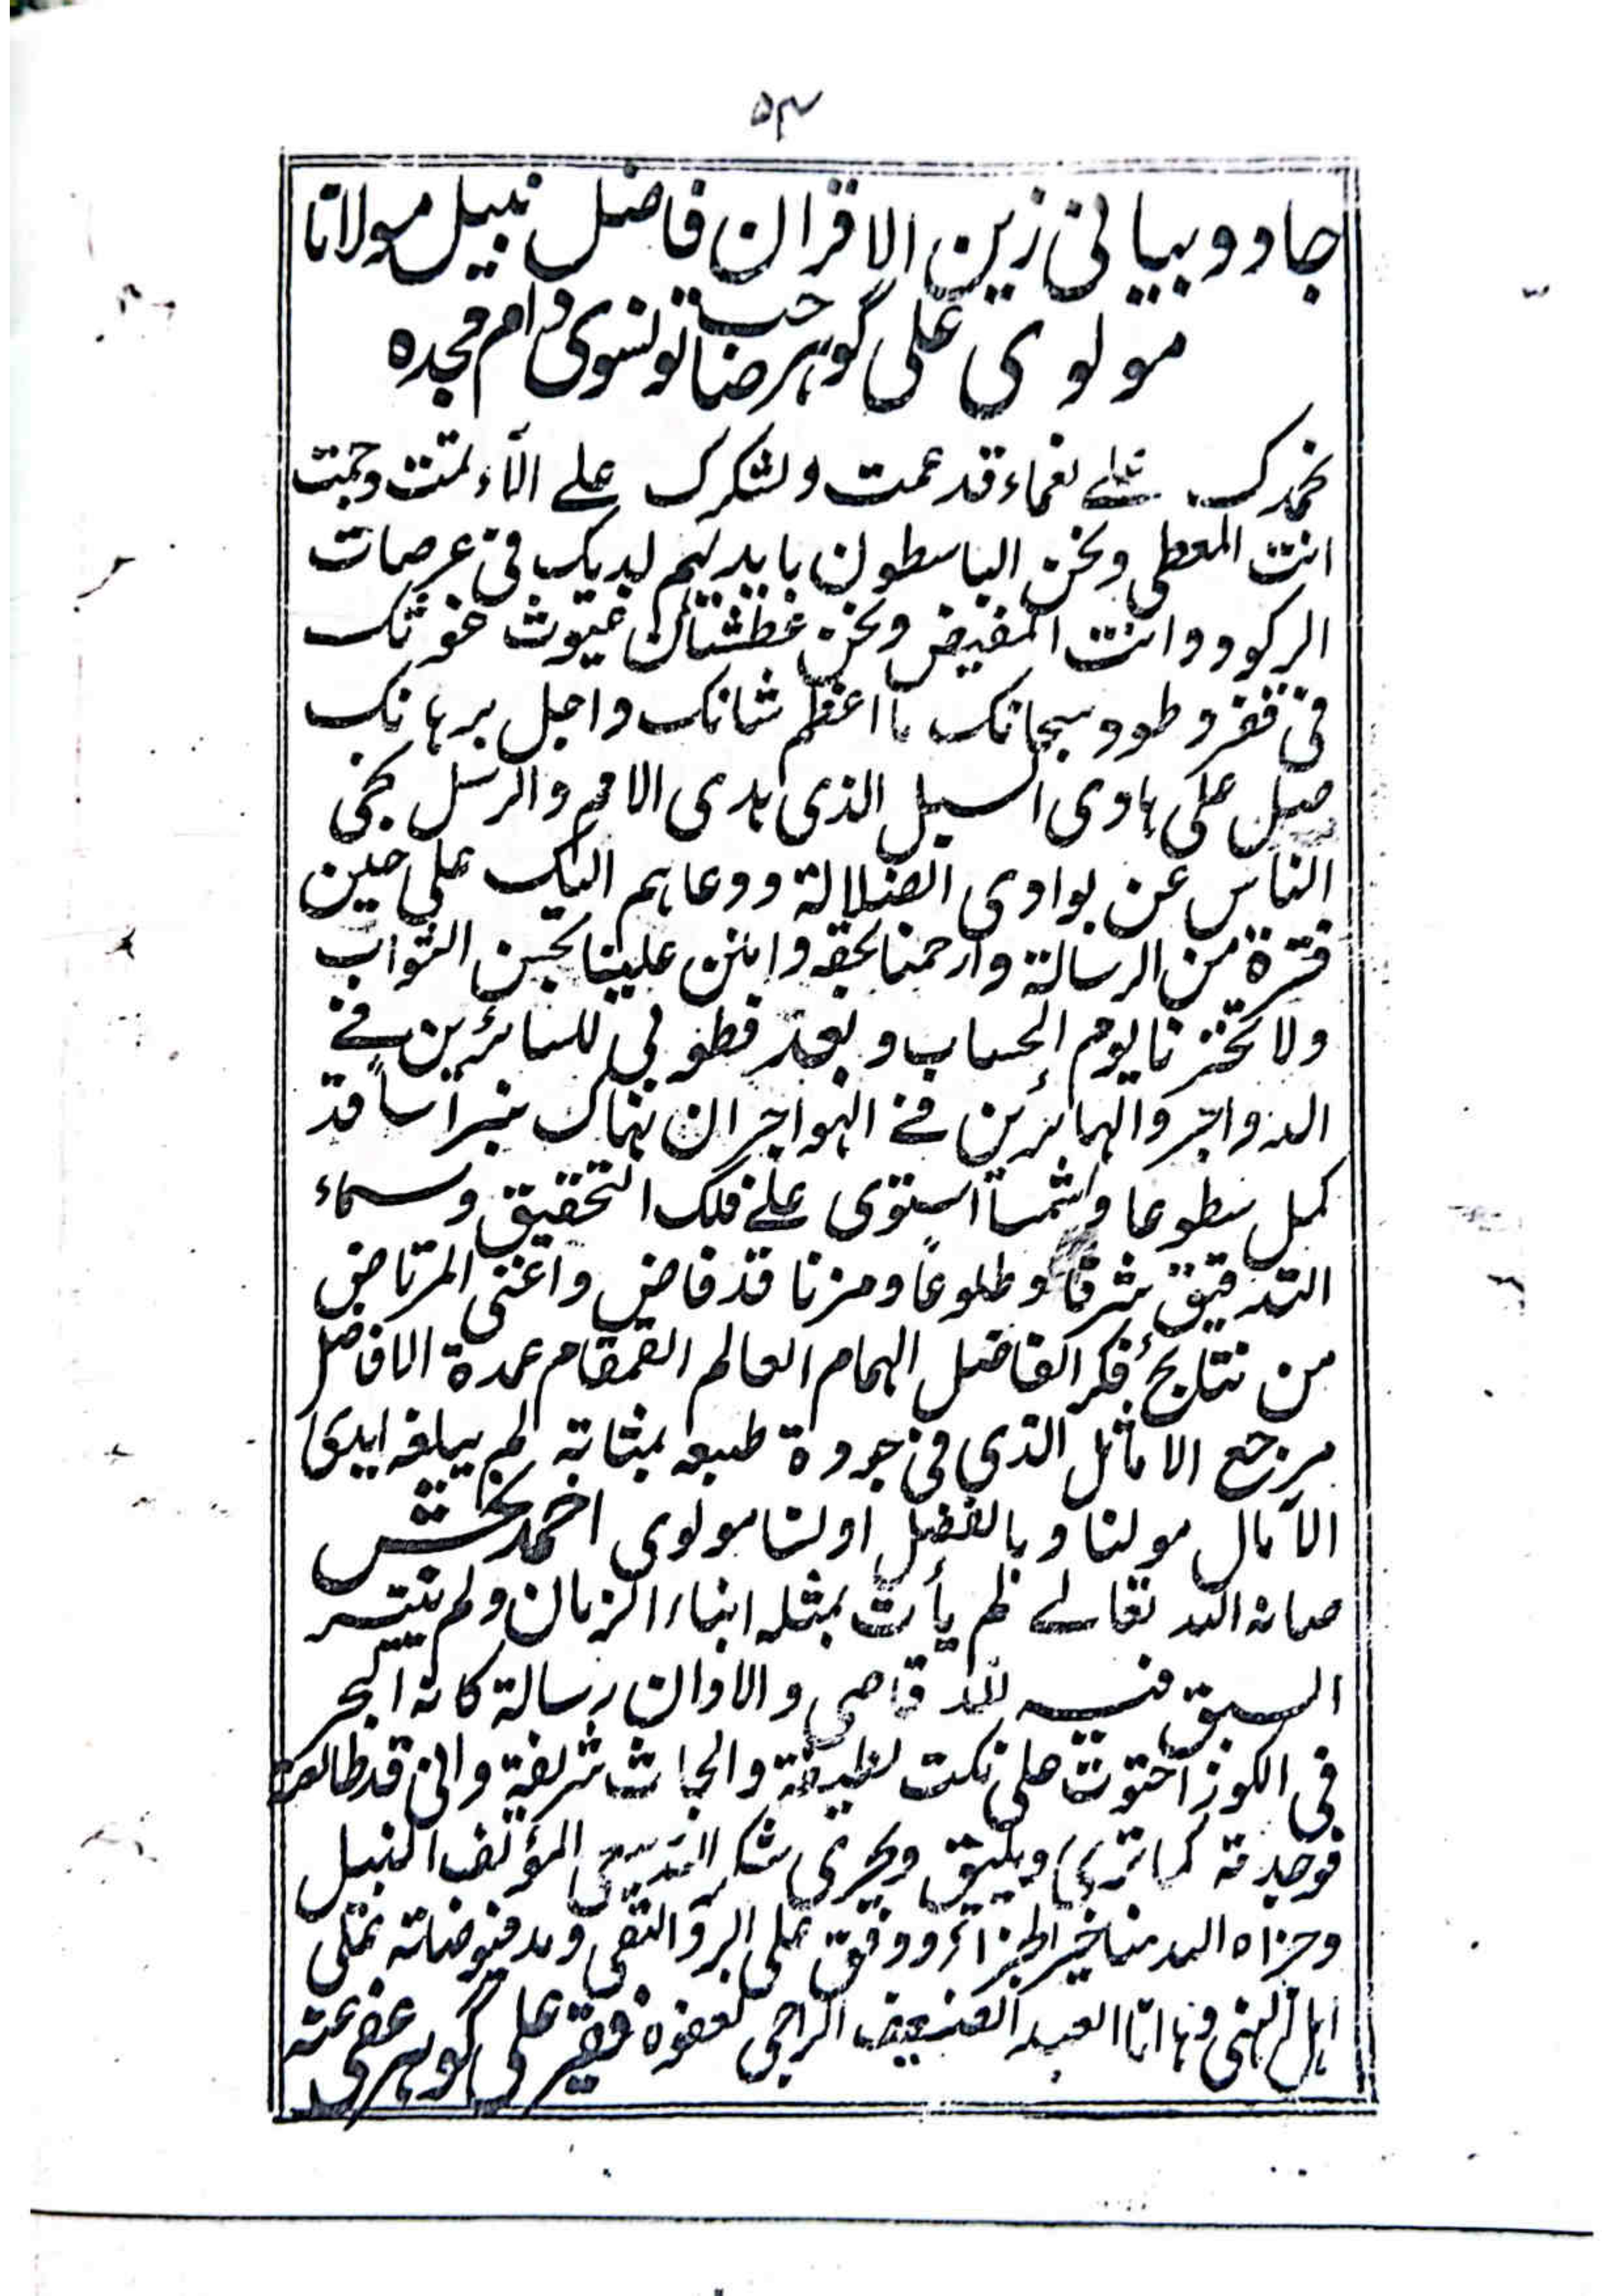 ۵۴
جادو بیانی زین الاقران فاضل نبیل مولانا
مولوی علی گوہر صاحب تونسوی دام مجدہ
نحمدک علے نعماء قد عمت ونشکرک علے الآء تمت وجمت
انت المعطی ونحن الباسطون بایدیہم لدیک فی عرصات
الرکود وانت المفیض ونحن عطشان غیوث غوثک
فی قفر وطود سبحانک ما اعظم شانک واجل برہانک
صل علی ہادی السبل الذی ہدی الامم والرسل نجی
الناس عن بوادی الضلالة ودعاہم الیک علی حین
فترة من الرسالة وارحمنا بحقہ وامنن علینا بحسن الثواب
ولا تخزنا یوم الحساب وبعد فطوبی للسائرین فے
الدواجر والہائرین فے الہواجر ان ہناک نبراساً قد
کمل سطوعا وشمساً استوی علے فلک التحقیق وسماء
التدقیق شرقا وطلوعاً ومزنا قد فاض واغنی المرتاض
من نتایج فکر الفاضل الہمام العالم القمقام عمدة الافاضل
مرجع الاماثل الذی فی جودة طبعہ بمثابتہ لم یبلغہ ایدی
الآمال مولنا وبالفضل اولنا مولوی احمد بخش
صانہ اللہ تعالے لم یأت بمثلہ ابناء الزمان ولم یتیسر
السبق فیہ للقاصی والاوان رسالة کانہ البحر
فی الکوز احتوت علی نکت لطیفة وابحاث شریفة وانی قد طالعتہ
فوجدتہ کما ترے ویلیق ویحری شکر اللہ سعی المؤلف النبیل
وجزاہ اللہ منا خیر الجزاء ووفق علی البر والتقی ومد فیوضاتہ علی
اہل النہی وہا انا العبد الضعیف الراجی لعفوہ فقیر علی گوہر عفی عنہ